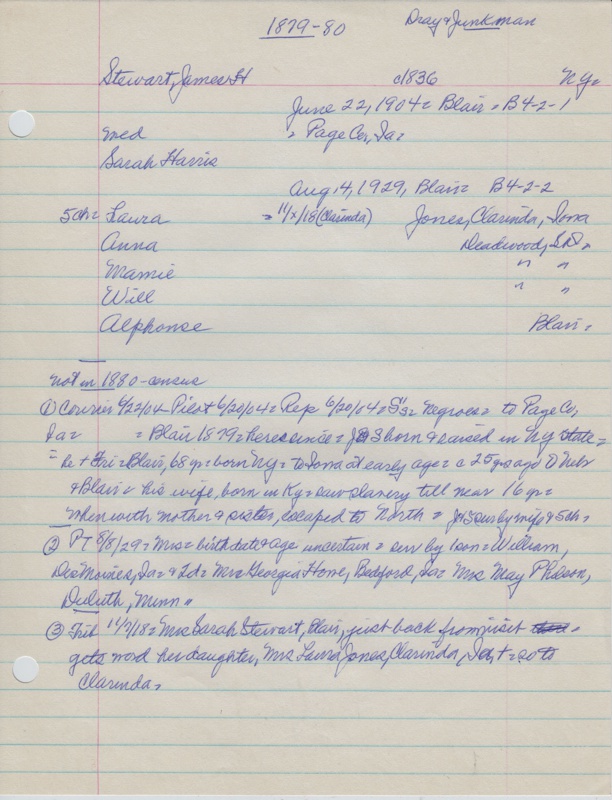 1879-80 Dray & Junkman
Stewart, James H c1836 NY=
June 22, 1904 = Blair = B4-2-1
med = Page Co, Ia=
Sarah Harris
Aug 4, 1929, Blair= B4-2-2
5ch= Laura = 11/x/18 (Clarinda) Jones, Clarinda, Iowa
Anna Deadwood, S.D.
Mamie " "
Will " "
Alphonse Blair =
not in 1880-census
① Courier 6/22/04 Pilot 6/20/04 = Rep 6/20/04 = Negroes = to Page Co,
Ia= = Blair 1879 = here since = born & raised in NY state =
Fri = Blair, 68 yr = born NY = to Iowa at early age = c 25 yrs ago to Neb
& Blair = his wife, born in Ky = saw slavery till near 16 yr =
When with mother & sister, escaped to North = surv by wife & 5ch =
② PT 8/8/29 = Mrs = birthdate & age uncertain = surv by 1 son = William,
Des Moines, Ia = & 2d = Mrs Georgia Howe, Bedford, Ia = Mrs May
Duluth, Minn "
③ Trib 11/7/18 = Mrs Sarah Stewart, Blair, just back from visit
gets word her daughter, Mrs Laura Jones, Clarinda, Ia, + = so to
Clarinda =